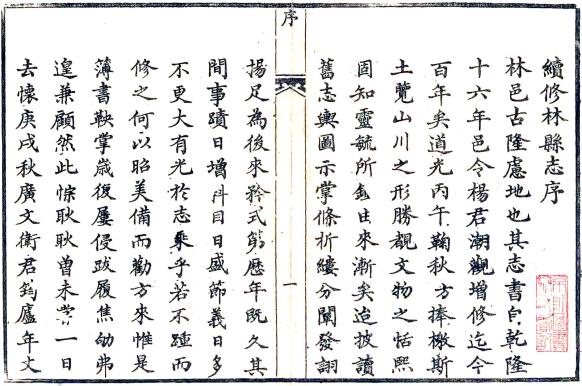 續修林縣志序
林邑古隆慮地也其志書自乾隆
十六年邑令楊君潮觀增修迄今
百年矣道光丙午鞠秋方捧檄斯
土覽山川之形勝覩文物之恬熙
固知靈毓所鍾由來漸矣造披讀
舊志輿圖示掌條析縷分闡發詡
序
一
揚足為後來矜式第歷年既久其
間事蹟日增科目日盛節義日多
不更大有光於志乘乎若不踵而
修之何以昭美備而勸方來惟是
簿書鞅掌歲復屢侵跋履焦劬弗
遑兼顧然此悰耿耿曾未嘗一日
去懷庚戌秋廣文衛君鈞廬年丈